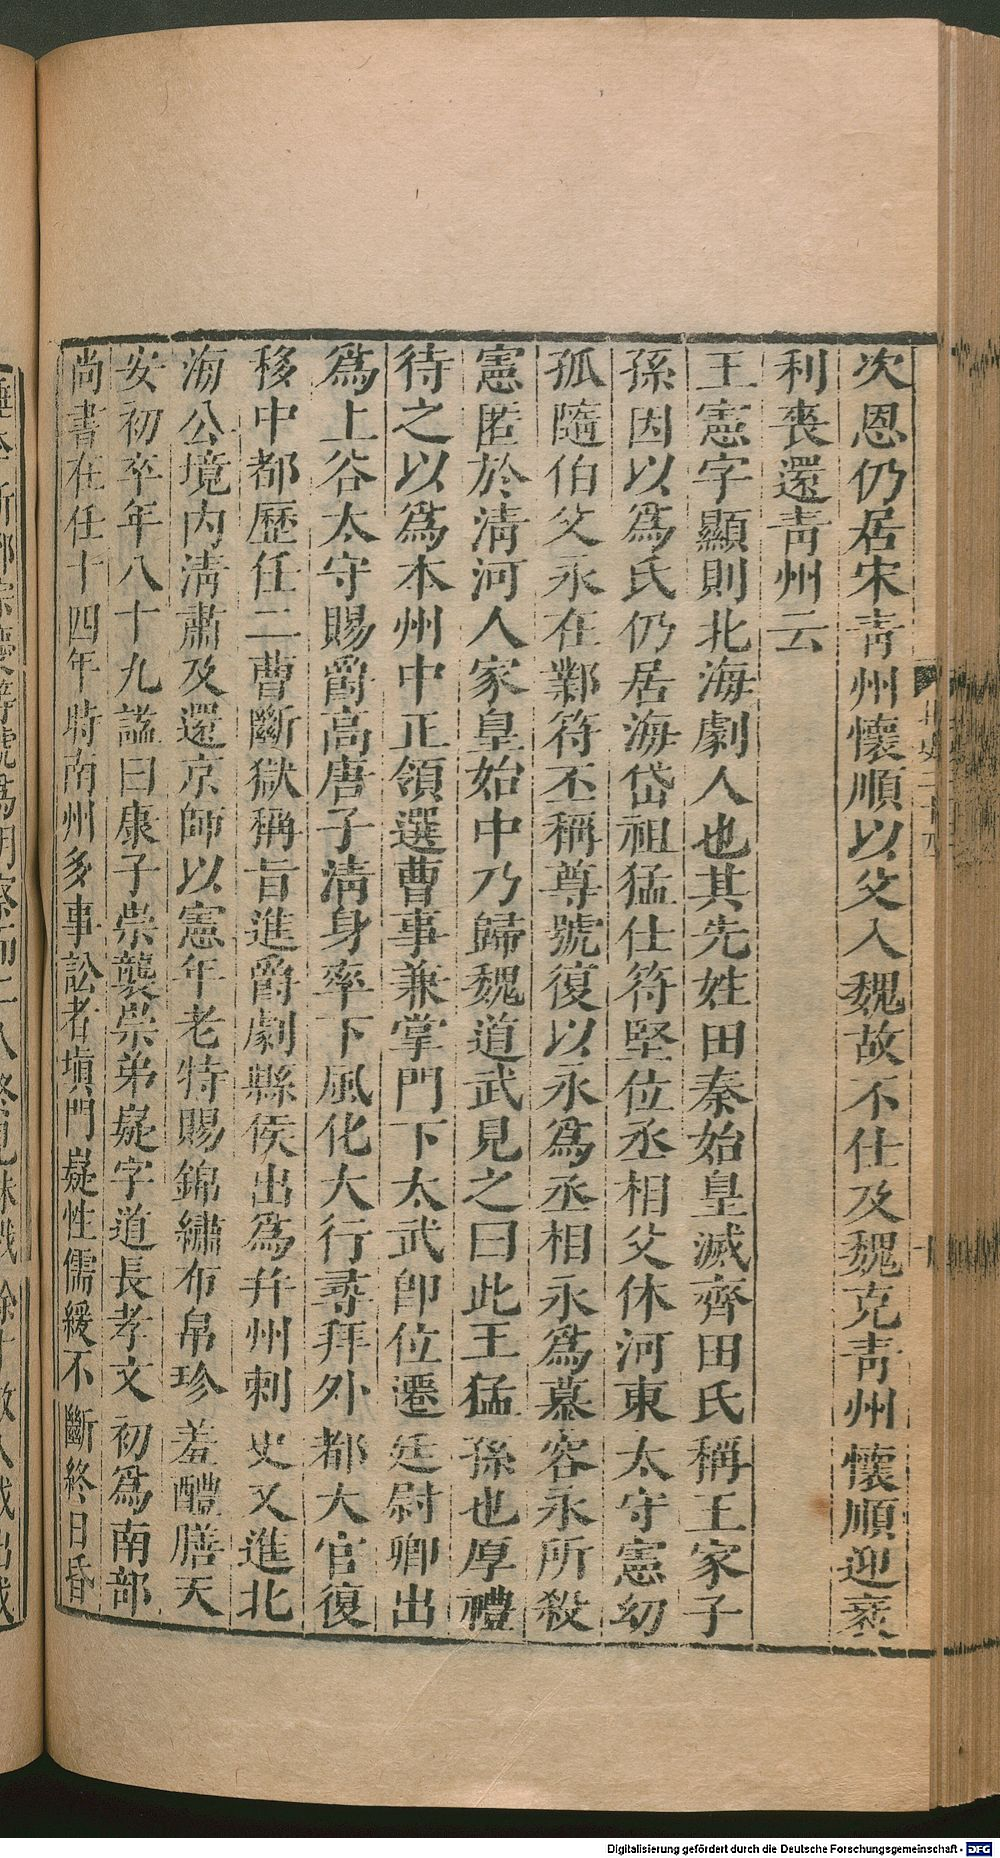 次恩仍居宋靑州懷順以父入魏故不仕及魏克靑州懷順迎衺
利喪還靑州云
王憲字顯則北海劇人也其先姓田秦始皇滅齊田氏稱王家子
孫因以爲氏仍居海岱祖猛仕符堅位丞相父休河東太守憲幼
孤隨伯父永在鄴符丕稱尊號復以永爲丞相永爲慕容永所殺
憲匿於淸河人家皇始中乃歸魏道武見之曰此王猛孫也厚禮
待之以爲本州中正領選曹事兼掌門下太武卽位遷廷尉卿出
爲上谷太守賜爵高唐子淸身率下風化大行尋拜外都大官復
移中都歷任二曹斷獄稱旨進爵劇縣侯出爲幷州刺史又進北
海公境內淸肅及還京師以憲年老特賜錦繡布帛珍羞醴膳天
安初卒年八十九諡曰康子崇襲崇弟嶷字道長孝文初爲南部
尚書在任十四年時南州多事訟者塡門嶷性儒緩不斷終日昏
Digitalisierung gefördert durch die Deutsche Forschungsgemeinschaft - DFG